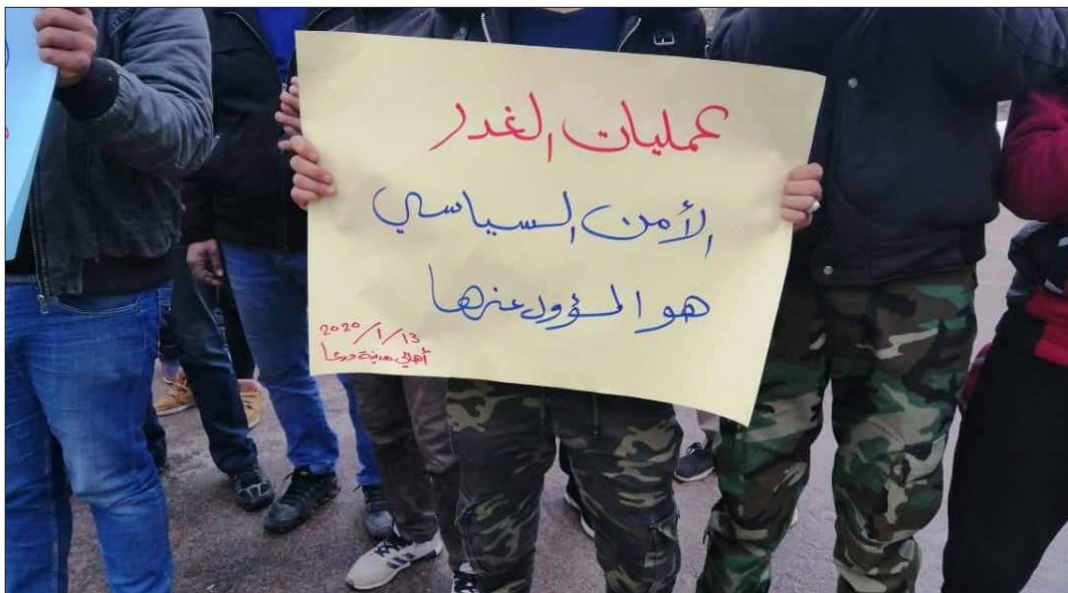 عمليات الغدر
الأمن السياسي
هو المسؤول عنها
2020/1/13
أهالي مدينة درعا